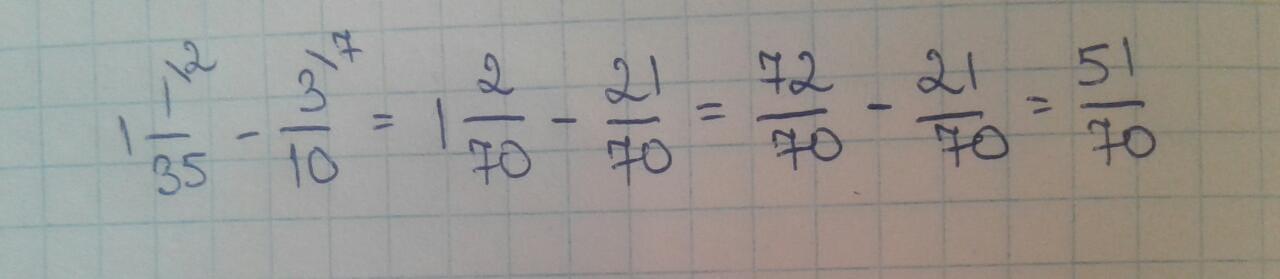 1 1\2/35 - 3\7/10 = 1 2/70 - 21/70 = 72/70 - 21/70 = 51/70